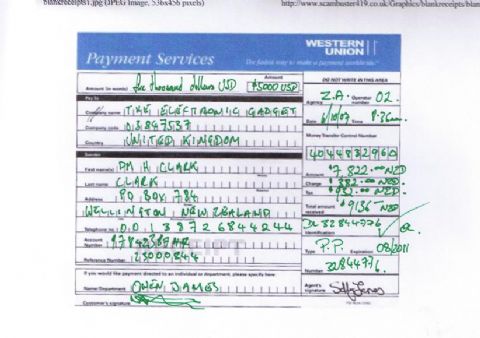 blankreceipts1.jpg (JPEG Image, 536x456 pixels)
http://www.scambuster419.co.uk/Graphics/blankreceipts/blan
WESTERN
UNION
Payment Services
The fastest way to make a payment worldwide
Amount (in words) five thousand dollars USD
Amount
$5000 USD
DO NOT WRITE IN THIS AREA
Pay To
Company name THE ELECTRONIC GADGET
Company code
Country UNITED KINGDOM
Agency Z.A.
Operator number 02
Date 6/10/07
Time
Money Transfer Control Number
4044832960
Sender
First name(s) PM H CLARK
Last name CLARK
Address PO BOX 784
WELLINGTON NEW ZEALAND
Telephone no. 001 3872684424 4
Account Number
Reference Number 23000844
Amount $7822.00 NZD
Charge $382.00 NZD
Tax $932.00 NZD
Total amount received $9136 NZD
Identification
Type P.P.
Expiration 08/2011
Number 32844776
If you would like payment directed to an individual or department, please specify here:
Name/Department OWEN JAMES
Customer's signature
Agent's signature